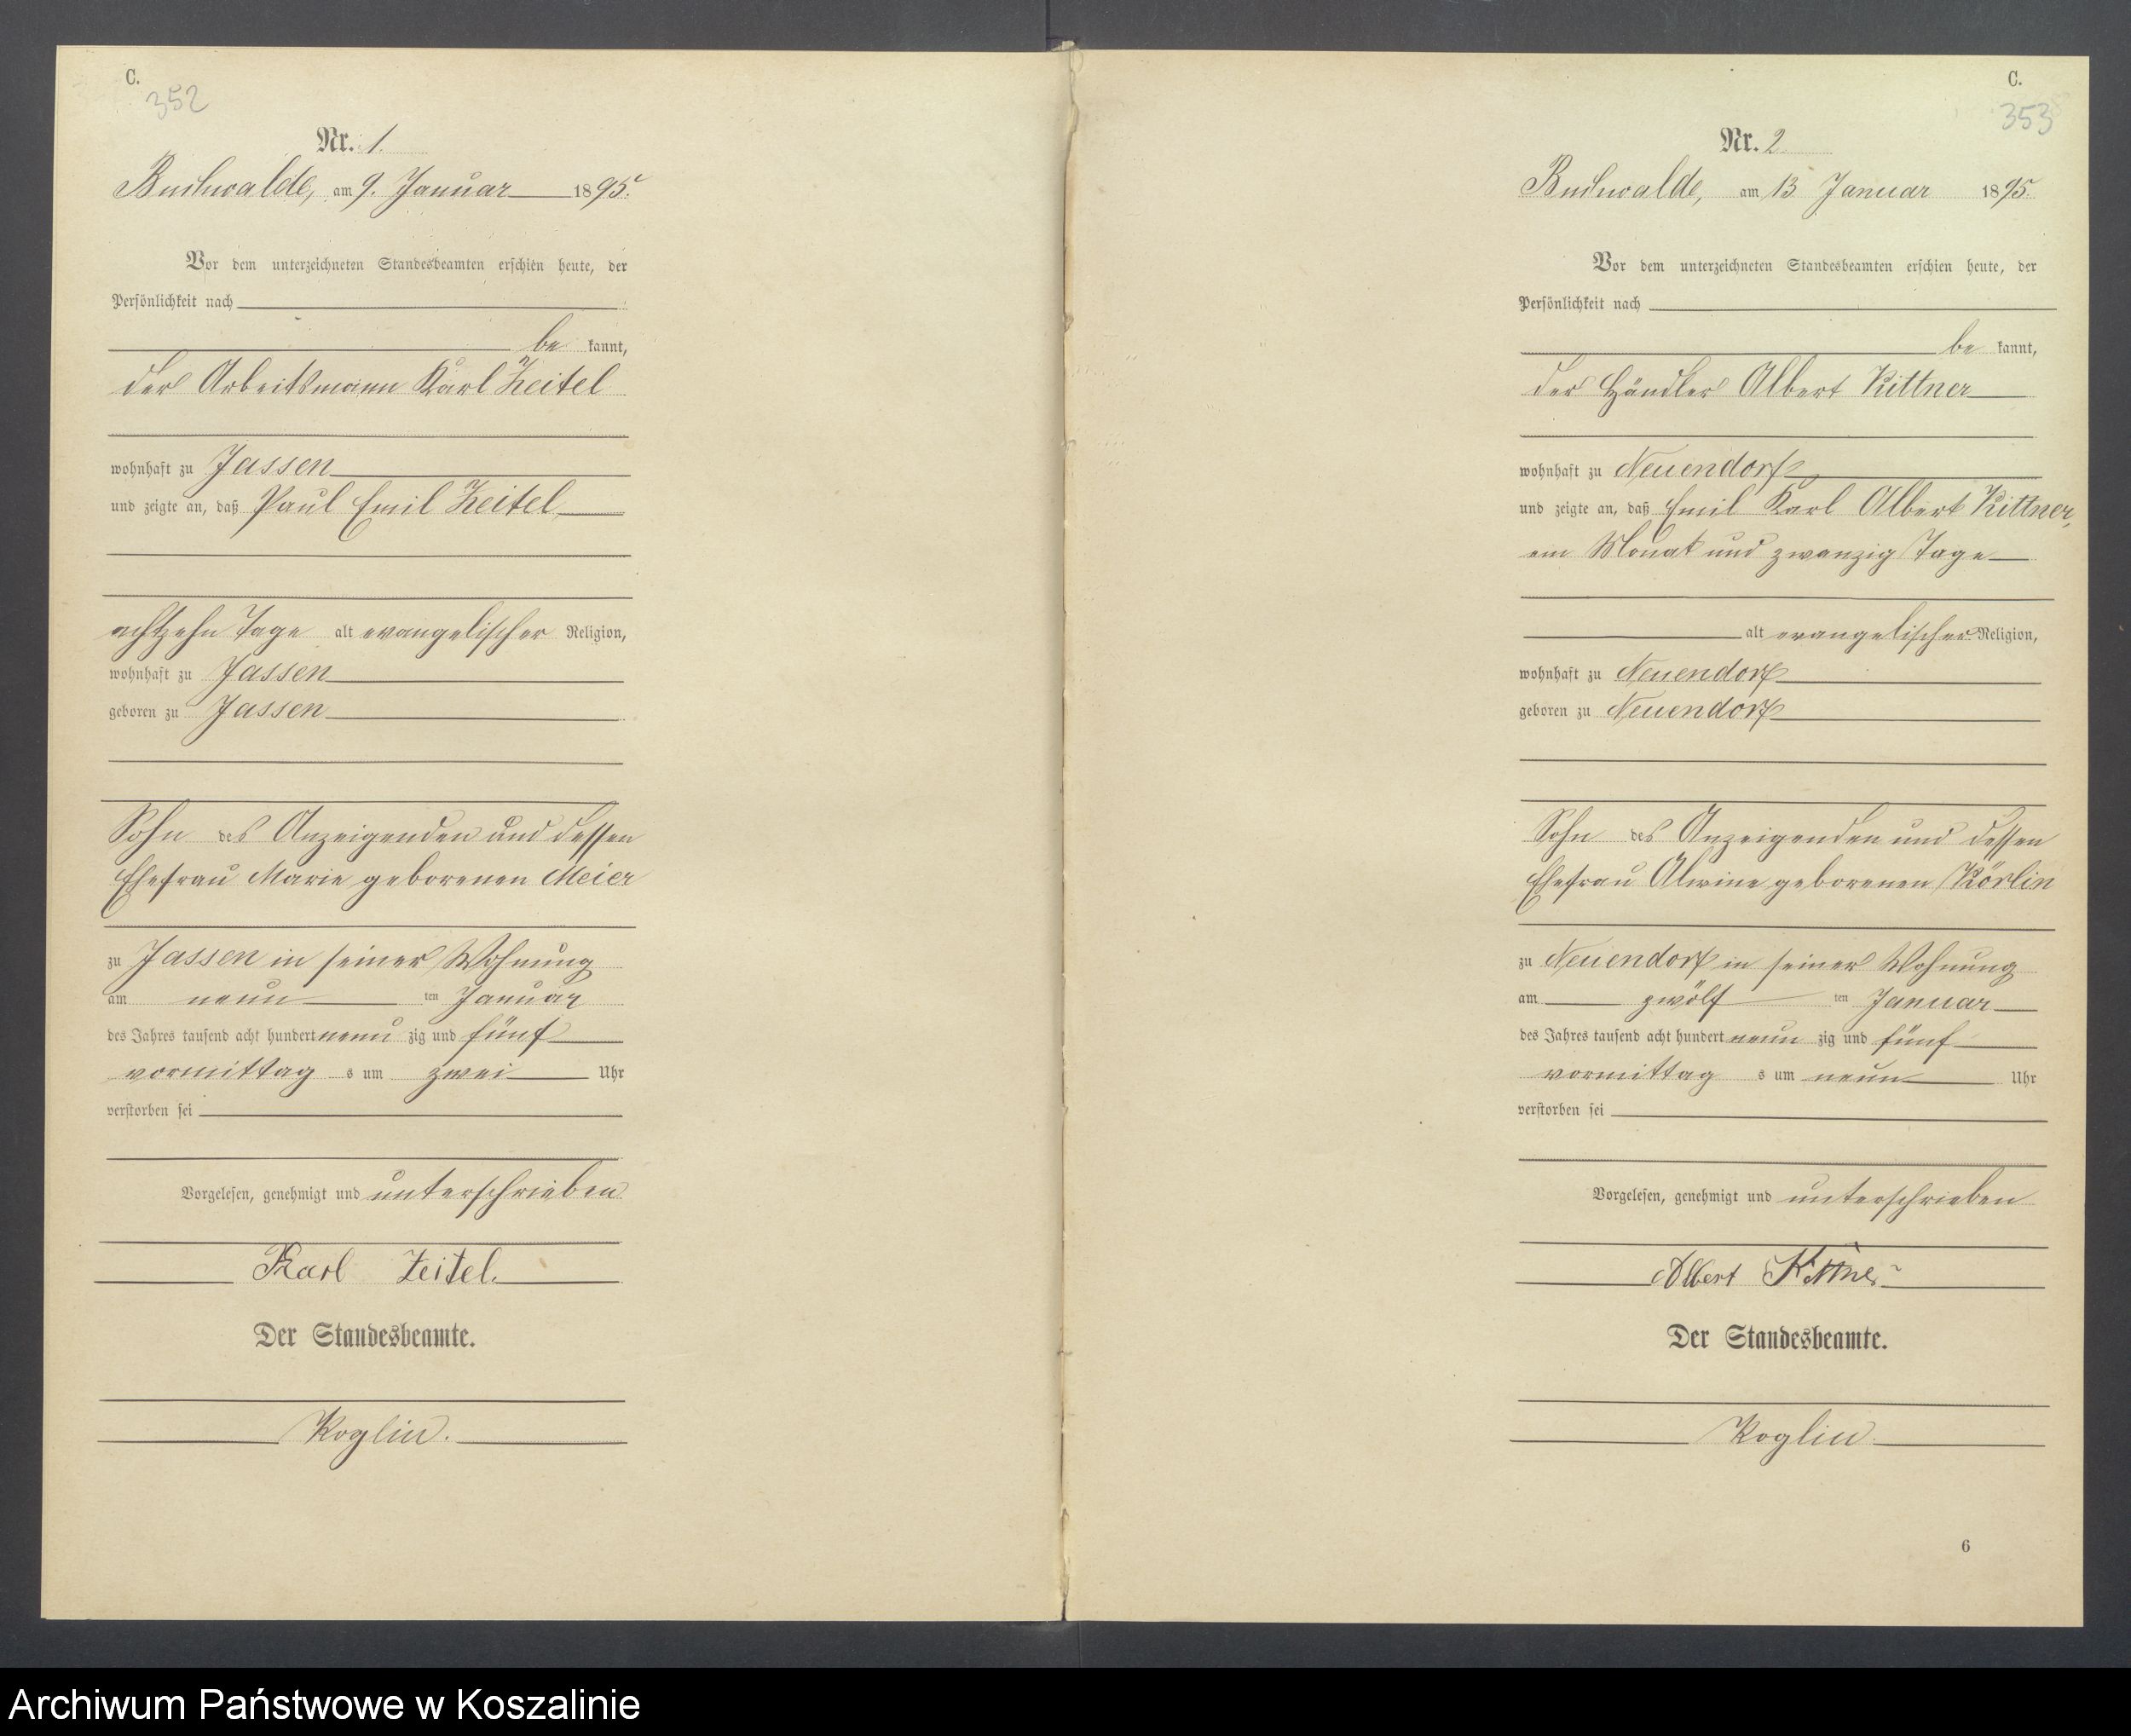 C.
352
Nr. 1.
Buchwalde, am 9. Januar 1895.
Vor dem unterzeichneten Standesbeamten erschien heute, der
Persönlichkeit nach
be kannt,
der Arbeitsmann Karl Zeitel
wohnhaft zu Jassen
und zeigte an, daß Paul Emil Zeitel
achtzehn Tage alt evangelischer Religion,
wohnhaft zu Jassen
geboren zu Jassen
Sohn des Anzeigenden und dessen
Ehefrau Marie geborenen Meier
zu Jassen in seiner Wohnung
am neun ten Januar
des Jahres tausend acht hundert neun zig und fünf
vormittag s um zwei Uhr
verstorben sei
Vorgelesen, genehmigt und unterschrieben
Karl Zeitel.
Der Standesbeamte.
Koglin.
C.
353
Nr. 2
Buchwalde, am 13 Januar 1895.
Vor dem unterzeichneten Standesbeamten erschien heute, der
Persönlichkeit nach
be kannt,
der Händler Albert Kittner
wohnhaft zu Neuendorf
und zeigte an, daß Emil Karl Albert Kittner,
ein Monat und zwanzig Tage
alt evangelischer Religion,
wohnhaft zu Neuendorf
geboren zu Neuendorf
Sohn des Anzeigenden und dessen
Ehefrau Alwine geborenen Körlin
zu Neuendorf in seiner Wohnung
am zwölf ten Januar
des Jahres tausend acht hundert neun zig und fünf
vormittag s um neun Uhr
verstorben sei
Vorgelesen, genehmigt und unterschrieben
Albert Kittner
Der Standesbeamte.
Koglin
6
Archiwum Państwowe w Koszalinie